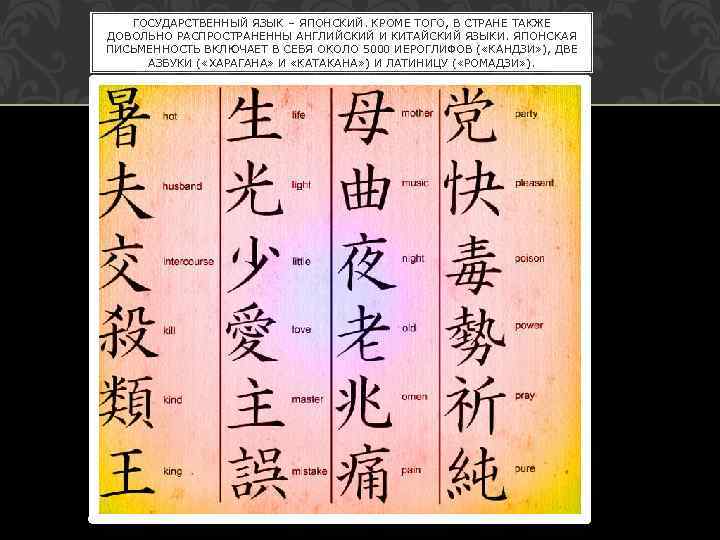 ГОСУДАРСТВЕННЫЙ ЯЗЫК – ЯПОНСКИЙ. КРОМЕ ТОГО, В СТРАНЕ ТАКЖЕ
ДОВОЛЬНО РАСПРОСТРАНЕННЫ АНГЛИЙСКИЙ И КИТАЙСКИЙ ЯЗЫКИ. ЯПОНСКАЯ
ПИСЬМЕННОСТЬ ВКЛЮЧАЕТ В СЕБЯ ОКОЛО 5000 ИЕРОГЛИФОВ («КАНДЗИ»), ДВЕ
АЗБУКИ («ХАРАГАНА» И «КАТАКАНА») И ЛАТИНИЦУ («РОМАДЗИ»).
暑 hot 生 life 母 mother 党 party
夫 husband 光 light 曲 music 快 pleasent
交 intercourse 少 little 夜 night 毒 poison
殺 kill 愛 love 老 old 勢 power
類 kind 主 master 兆 omen 祈 pray
王 king 誤 mistake 痛 pain 純 pure